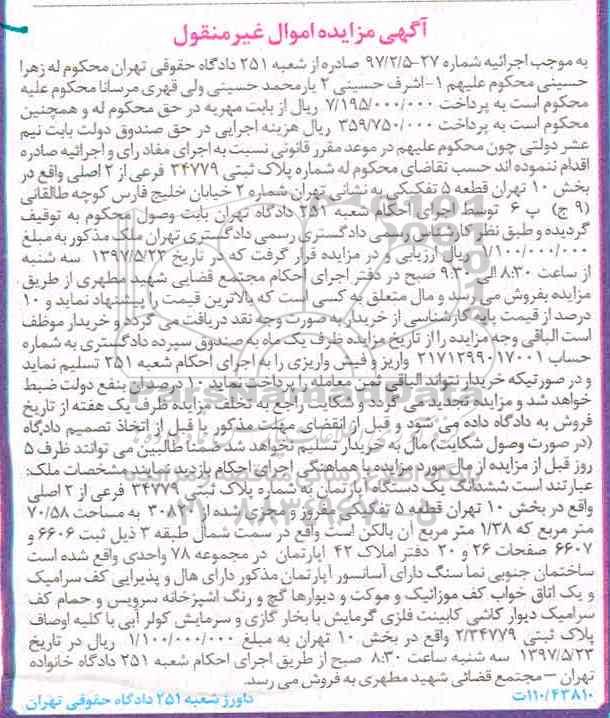 آگهی مزایده اموال غیر منقول
به موجب اجرائیه شماره ۲۷-۹۷/۲/۵ صادره از شعبه ۲۵۱ دادگاه حقوقی تهران محکوم له زهرا
حسینی محکوم علیهم ۱-اشرف حسینی ۲ یارمحمد حسینی ولی قهری مرسانا محکوم علیه
محکوم است به پرداخت ۷/۱۹۵/۰۰۰/۰۰۰ ریال از بابت مهریه در حق محکوم له و همچنین
محکوم است به پرداخت ۳۵۹/۷۵۰/۰۰۰ ریال هزینه اجرایی در حق صندوق دولت بابت نیم
عشر دولتی چون محکوم علیهم در موعد مقرر قانونی نسبت به اجرای مفاد رای و اجرائیه صادره
اقدام ننموده اند حسب تقاضای محکوم له شماره پلاک ثبتی ۳۴۷۷۹ فرعی از ۲ اصلی واقع در
بخش ۱۰ تهران قطعه ۵ تفکیکی به نشانی تهران شماره ۲ خیابان خلیج فارس کوچه طالقانی
(۹ ج) پ ۶ توسط اجرای احکام شعبه ۲۵۱ دادگاه تهران بابت وصول محکوم به توقیف
گردیده و طبق نظر کارشناس رسمی دادگستری رسمی دادگستری تهران ملک مذکور به مبلغ
۱/۱۰۰/۰۰۰/۰۰۰ ریال ارزیابی و در مزایده قرار گرفت که در تاریخ ۱۳۹۷/۵/۲۳ سه شنبه
از ساعت ۸:۳۰ الی ۹:۳۰ صبح در دفتر اجرای احکام مجتمع قضایی شهید مطهری از طریق
مزایده بفروش می رسد و مال متعلق به کسی است که بالاترین قیمت را پیشنهاد نماید و ۱۰
درصد از قیمت پایه کارشناسی از خریدار به صورت وجه نقد دریافت می گردد و خریدار موظف
است الباقی وجه مزایده را از تاریخ مزایده ظرف یک ماه به صندوق سپرده دادگستری به شماره
حساب ۲۱۷۱۲۹۹۰۱۷۰۰۱ واریز و فیش واریزی را به اجرای احکام شعبه ۲۵۱ تسلیم نماید
و در صورتیکه خریدار نتواند الباقی ثمن معامله را پرداخت نماید ۱۰ درصد آن بنفع دولت ضبط
خواهد شد و مزایده تجدید می گردد و شکایت راجع به تخلف مزایده ظرف یک هفته از تاریخ
فروش به دادگاه داده می شود و قبل از انقضای مهلت مذکور یا قبل از اتخاذ تصمیم دادگاه
(در صورت وصول شکایت) مال به خریدار تسلیم نخواهد شد ضمنا طالبین می توانند ظرف ۵
روز قبل از مزایده از مال مورد مزایده با هماهنگی اجرای احکام بازدید نمایند مشخصات ملک:
عبارتند است ششدانگ یک دستگاه آپارتمان به شماره پلاک ثبتی ۳۴۷۷۹ فرعی از ۲ اصلی
واقع در بخش ۱۰ تهران قطعه ۵ تفکیکی مفروز و مجزی شده از ۳۰۸۲۰ به مساحت ۷۰/۵۸
متر مربع که ۱/۳۸ متر مربع آن بالکن است واقع در سمت شمال طبقه ۳ ذیل ثبت ۶۶۰۶ و
۶۶۰۷ صفحات ۲۶ و ۲۰ دفتر املاک ۴۲ آپارتمان در مجموعه ۷۸ واحدی واقع شده است
ساختمان جنوبی نما سنگ دارای آسانسور آپارتمان مذکور دارای هال و پذیرایی کف سرامیک
و یک اتاق خواب کف موزائیک و موکت و دیوارها گچ و رنگ آشپزخانه سرویس و حمام کف
سرامیک دیوار کاشی کابینت فلزی گرمایش با بخار گازی و سرمایش کولر آبی با کلیه اوصاف
پلاک ثبتی ۲/۳۴۷۷۹ واقع در بخش ۱۰ تهران به مبلغ ۱/۱۰۰/۰۰۰/۰۰۰ ریال در تاریخ
۱۳۹۷/۵/۲۳ سه شنبه ساعت ۸:۳۰ صبح از طریق اجرای احکام شعبه ۲۵۱ دادگاه خانواده
تهران – مجتمع قضائی شهید مطهری به فروش می رسد.
۱۱۰/۴۳۸۱۰ت
داورز شعبه ۲۵۱ دادگاه حقوقی تهران
ParsNamadData